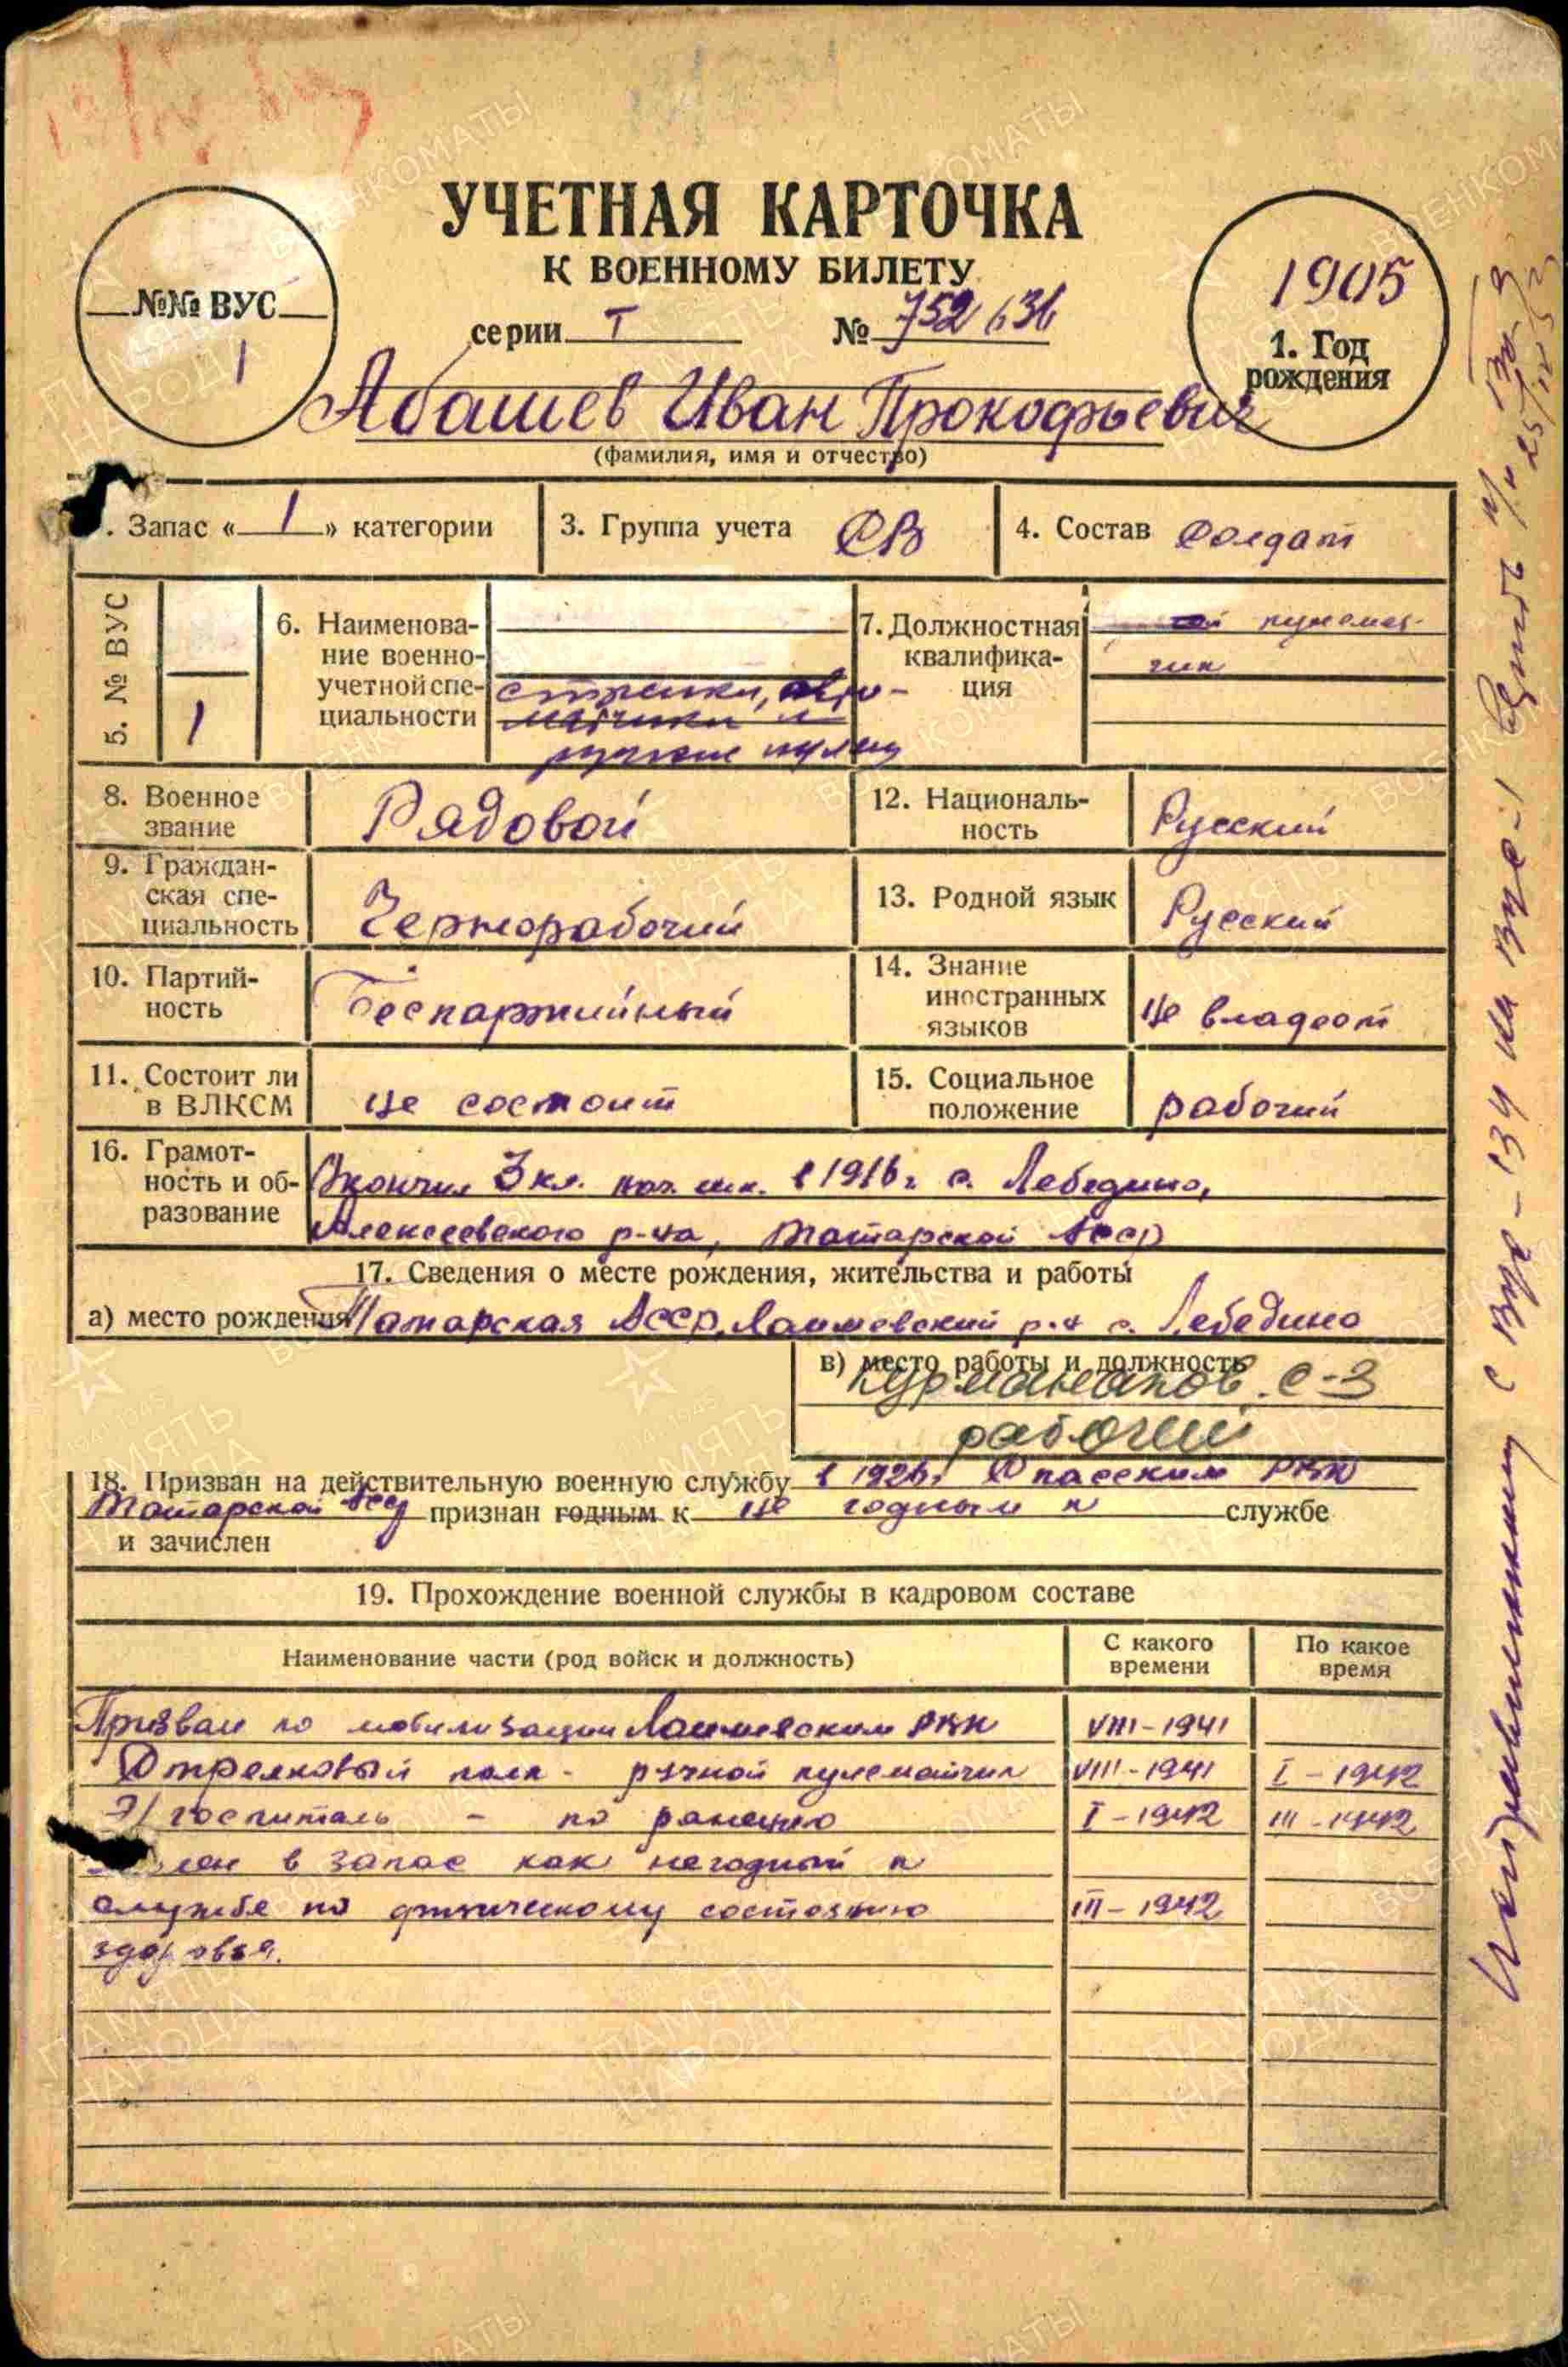 УЧЕТНАЯ КАРТОЧКА
К ВОЕННОМУ БИЛЕТУ
№№ ВУС
1
серии Т № 752636
1905
1. Год
рождения
Абашев Иван Прокофьевич
(фамилия, имя и отчество)
. Запас « 1 » категории
3. Группа учета СВ
4. Состав Солдат
5. № ВУС
1
6. Наименова-
ние военно-
учетной спе-
циальности
стрелки, авто-
матчики и
ручные пулем
7. Должностная
квалифика-
ция
пулемет-
чик
8. Военное
звание
Рядовой
12. Националь-
ность
Русский
9. Граждан-
ская спе-
циальность
Чернорабочий
13. Родной язык
Русский
10. Партий-
ность
Беспартийный
14. Знание
иностранных
языков
Не владеет
11. Состоит ли
в ВЛКСМ
не состоит
15. Социальное
положение
рабочий
16. Грамот-
ность и об-
разование
Окончил 3 кл. нач. шк. в 1916 г. с. Лебедино,
Алексеевского р-на, Татарской АССР
17. Сведения о месте рождения, жительства и работы
а) место рождения Татарская АССР, Лаишевский р-н с. Лебедино
в) место работы и должность
с-з
рабочий
18. Призван на действительную военную службу в 1926г. Спасским РВК
Татарской АССР признан годным к не годным к службе
и зачислен
19. Прохождение военной службы в кадровом составе
Наименование части (род войск и должность)
С какого
времени
По какое
время
Призван по мобилизации Лаишевским РВК VIII-1941
Стрелковый полк - ручной пулеметчик VIII-1941 I-1942
Э/госпиталь - по ранению I-1942 III-1942
в запас как негодный к
службе по физическому состоянию III-1942
здоровья.
с ВУС-134 на ВУС-1